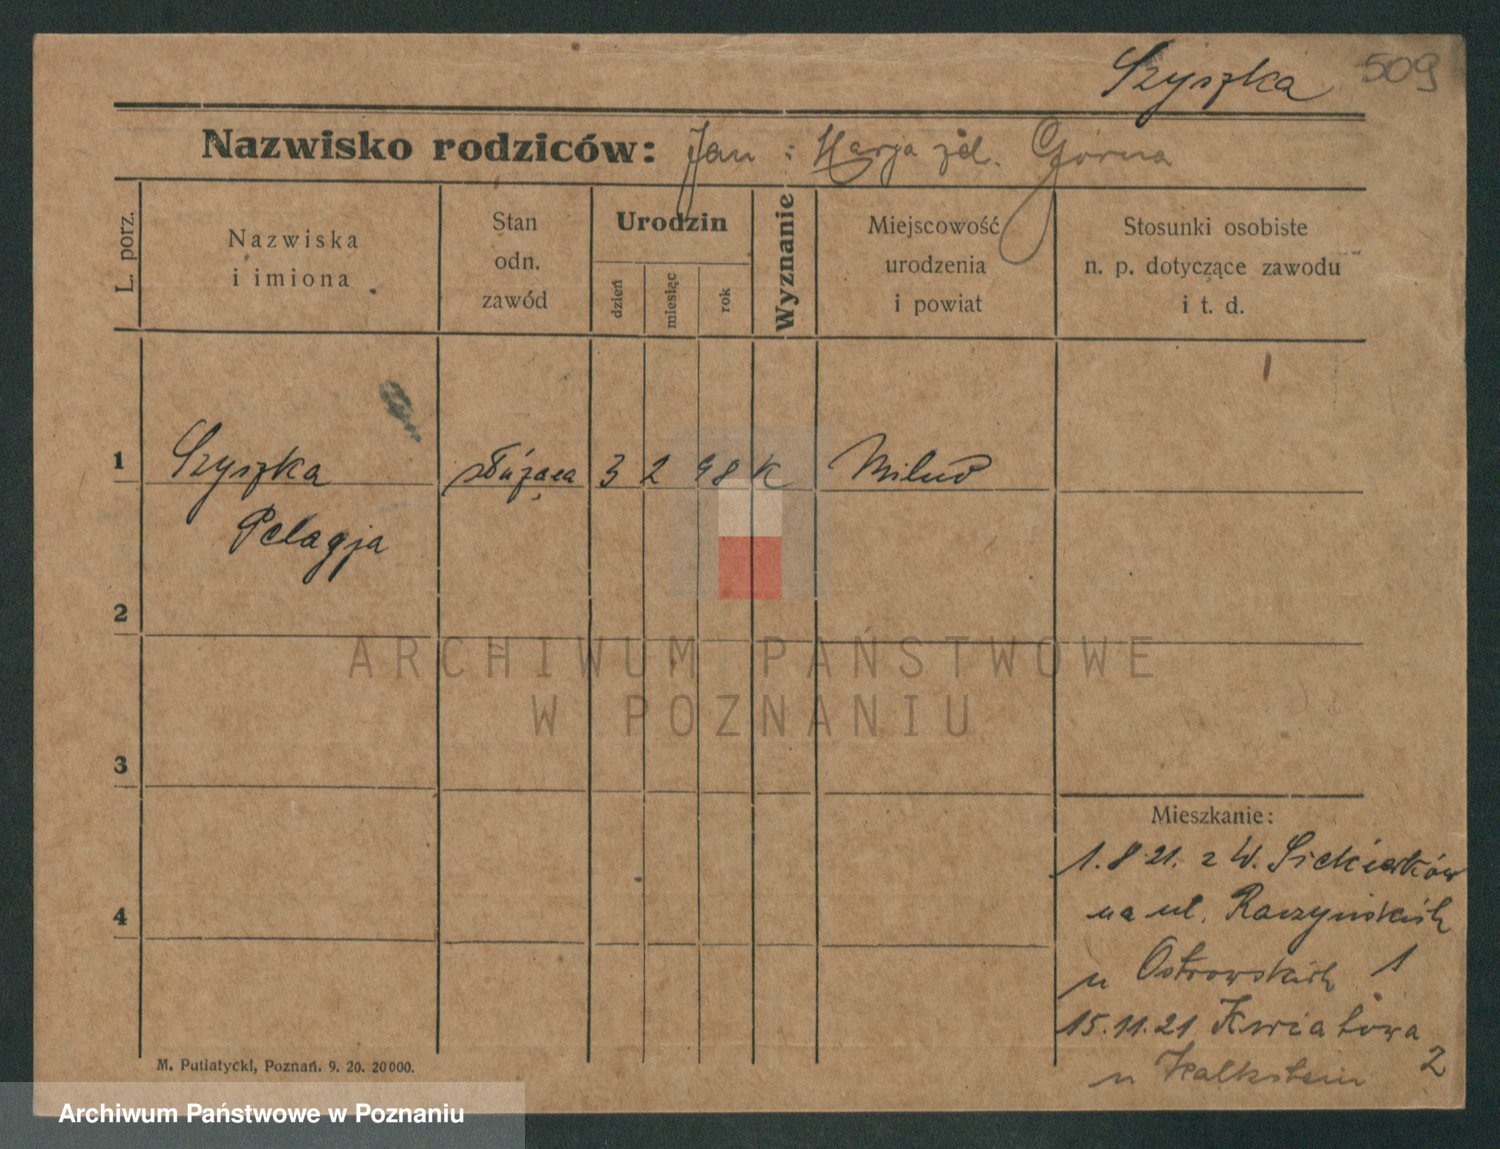 Szyszka 509
Nazwisko rodziców: Jan i Marja zd. Górna
L. porz.
Nazwiska
i imiona
Stan
odn.
zawód
Urodzin
dzień
miesiąc
rok
Wyznanie
Miejscowość
urodzenia
i powiat
Stosunki osobiste
n. p. dotyczące zawodu
i t. d.
1 Szyszka służąca 3 2 98 K
Pelagja
2
ARCHIWUM PAŃSTWOWE
W POZNANIU
3
Mieszkanie:
1.8.21. z W. Siekierków
4
na ul. Raczyńskich
u Ostrowskich 1
15.11.21 Kwiatowa
2
u Kalkstein
M. Putiatycki, Poznań. 9. 20. 20000.
Archiwum Państwowe w Poznaniu